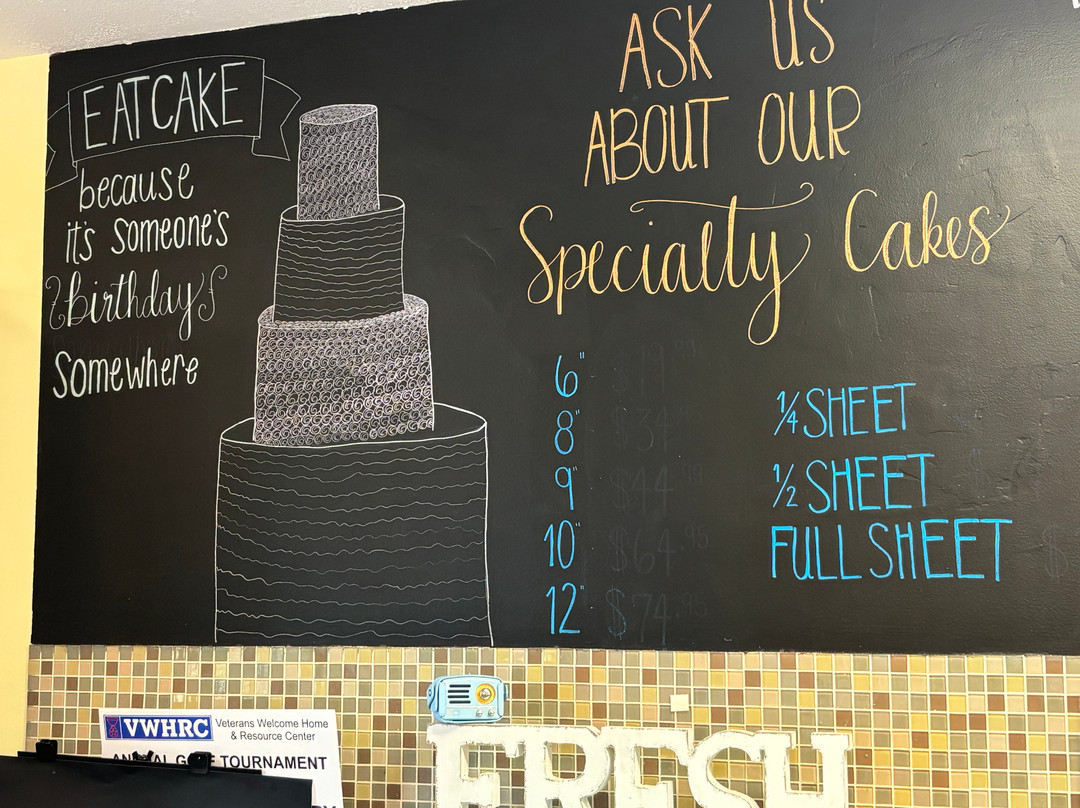 EAT CAKE
because
it's someone's
birthday
Somewhere
ASK US
ABOUT OUR
Specialty Cakes
6"
8" $34
9" $44
10" $64.95
12" $74.95
1/4 SHEET
1/2 SHEET
FULL SHEET
VWHRC Veterans Welcome Home
& Resource Center
TOURNAMENT
FRESH